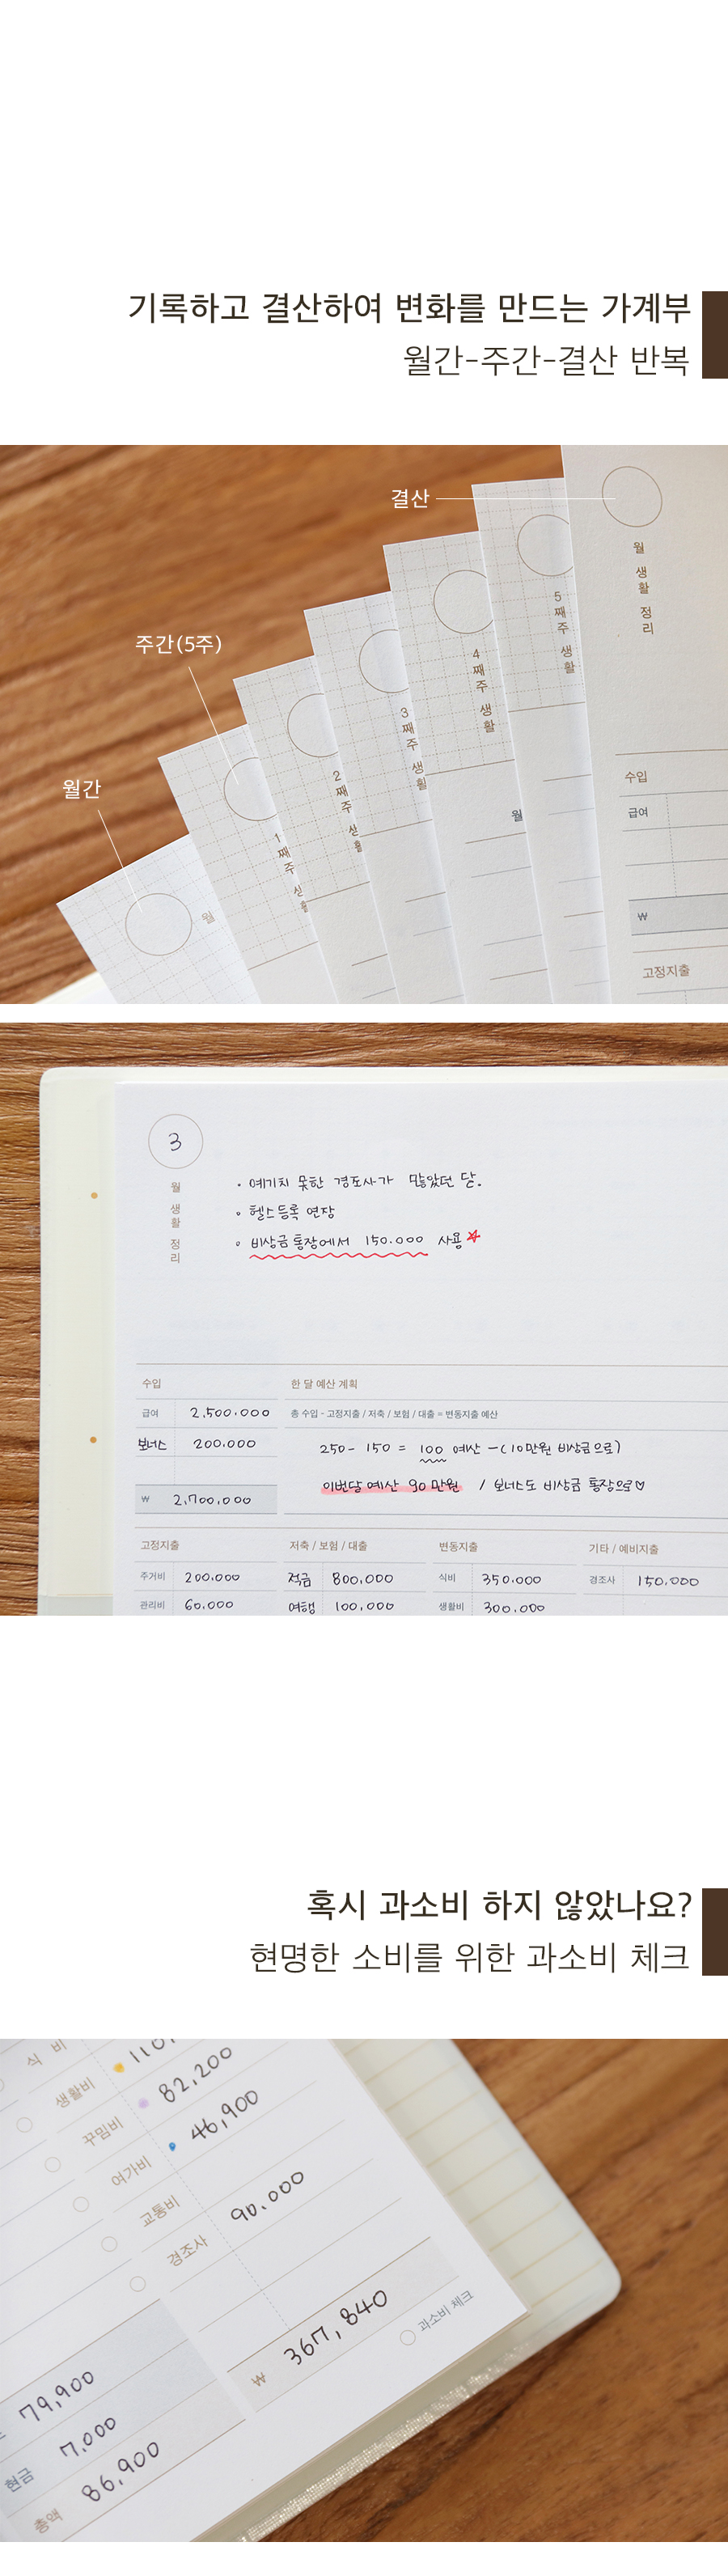 기록하고 결산하여 변화를 만드는 가계부
월간-주간-결산 반복
결산
주간(5주)
월간
월
1째주 생활
2째주 생활
3째주 생활
4째주 생활
월
5째주 생활
월 생활 정리
수입
급여
₩
고정지출
3
월 생활 정리
· 예기치 못한 경조사가 많았던 달.
· 헬스 등록 연장
· 비상금 통장에서 150.000 사용
수입
한 달 예산 계획
급여 2,500,000
총 수입 - 고정지출 / 저축 / 보험 / 대출 = 변동지출 예산
보너스 200.000
250 - 150 = 100 예산 - (10만원 비상금으로)
이번달 예산 90만원 / 보너스도 비상금 통장으로♡
₩ 2,700,000
고정지출
저축 / 보험 / 대출
변동지출
기타 / 예비지출
주거비 200.000
적금 800,000
식비 350.000
경조사 150,000
관리비 60,000
여행 100,000
생활비 300,000
혹시 과소비 하지 않았나요?
현명한 소비를 위한 과소비 체크
식 비
생활비 82,200
꾸밈비 46,900
여가비
교통비 90.000
경조사
₩ 367,840
과소비 체크
79,900
현금 7,000
총액 86,900